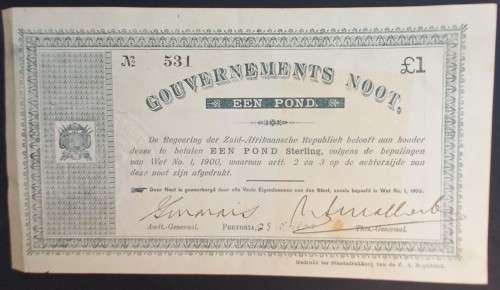 № 531
£1
GOUVERNEMENTS NOOT,
EEN POND.
De Regeering der Zuid-Afrikaansche Republiek belooft aan houder
dezes te betalen EEN POND Sterling, volgens de bepalingen
van Wet No. 1, 1900, waarvan artt. 2 en 3 op de achterzijde van
deze noot zijn afgedrukt.
Deze Noot is gewaarborgd door alle Vaste Eigendommen van den Staat, zooals bepaald in Wet No. 1, 1900.
Audt.-Generaal.
PRETORIA, 25
Thes.-Generaal.
Gedrukt ter Staatsdrukkerij van de Z. A. Republiek.